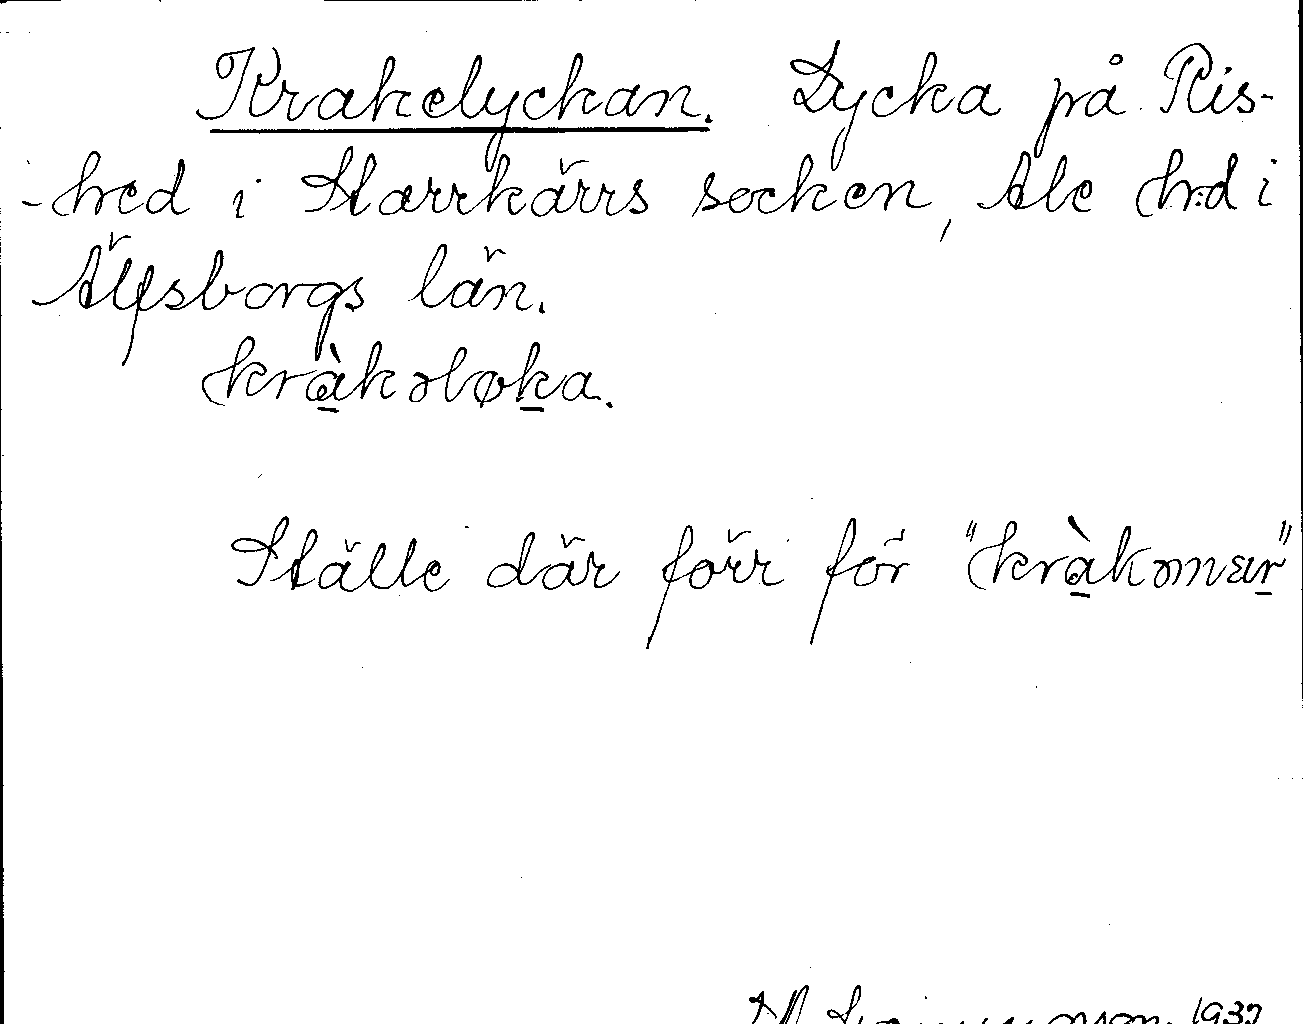 Krakelyckan. Lycka på Ris-
-hed i Starrkärrs socken, Ale hrd i
Älfsborgs län.
kràkəløka.
Ställe där förr för "kràkəmɛr"
1937